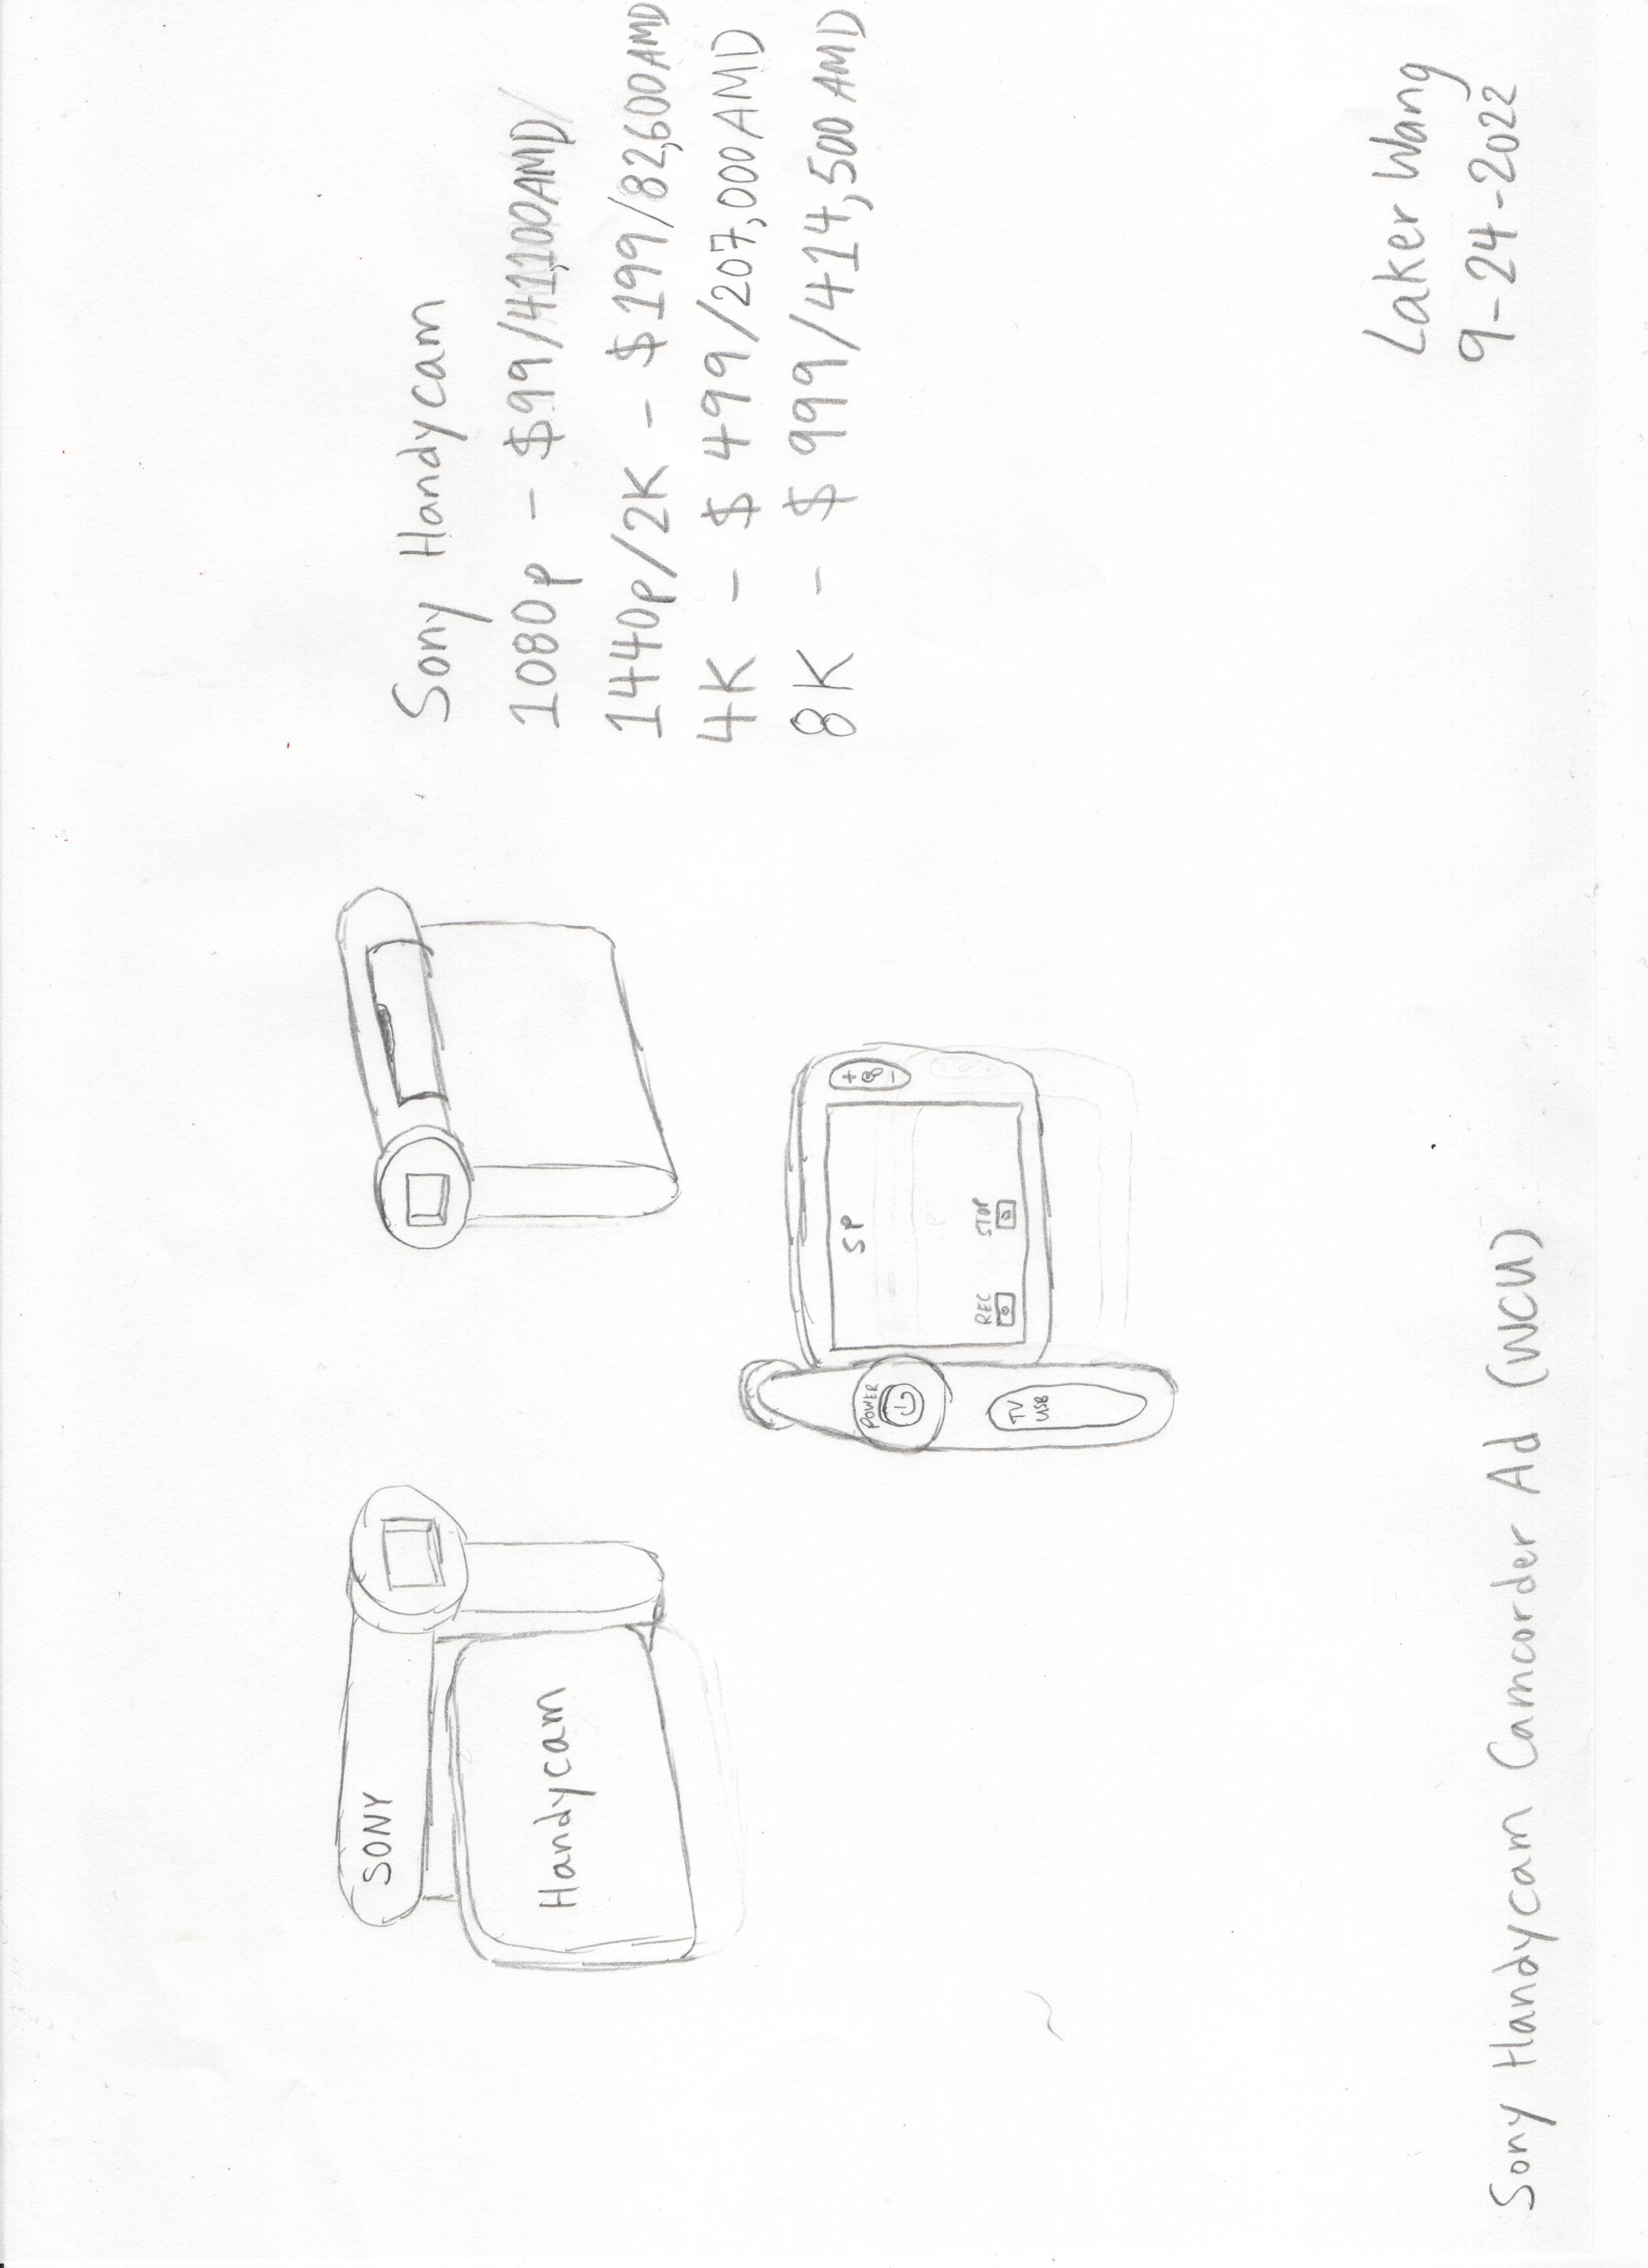 SONY
Handycam
POWER
TV
USB
SP
REC STOP
+
-
Sony Handycam
1080p - $99/41,100AMD/
1440p/2K - $199/82,600AMD
4K - $499/207,000AMD
8K - $999/414,500AMD
Sony Handycam Camcorder Ad (WCU)
Laker Wang
9-24-2022